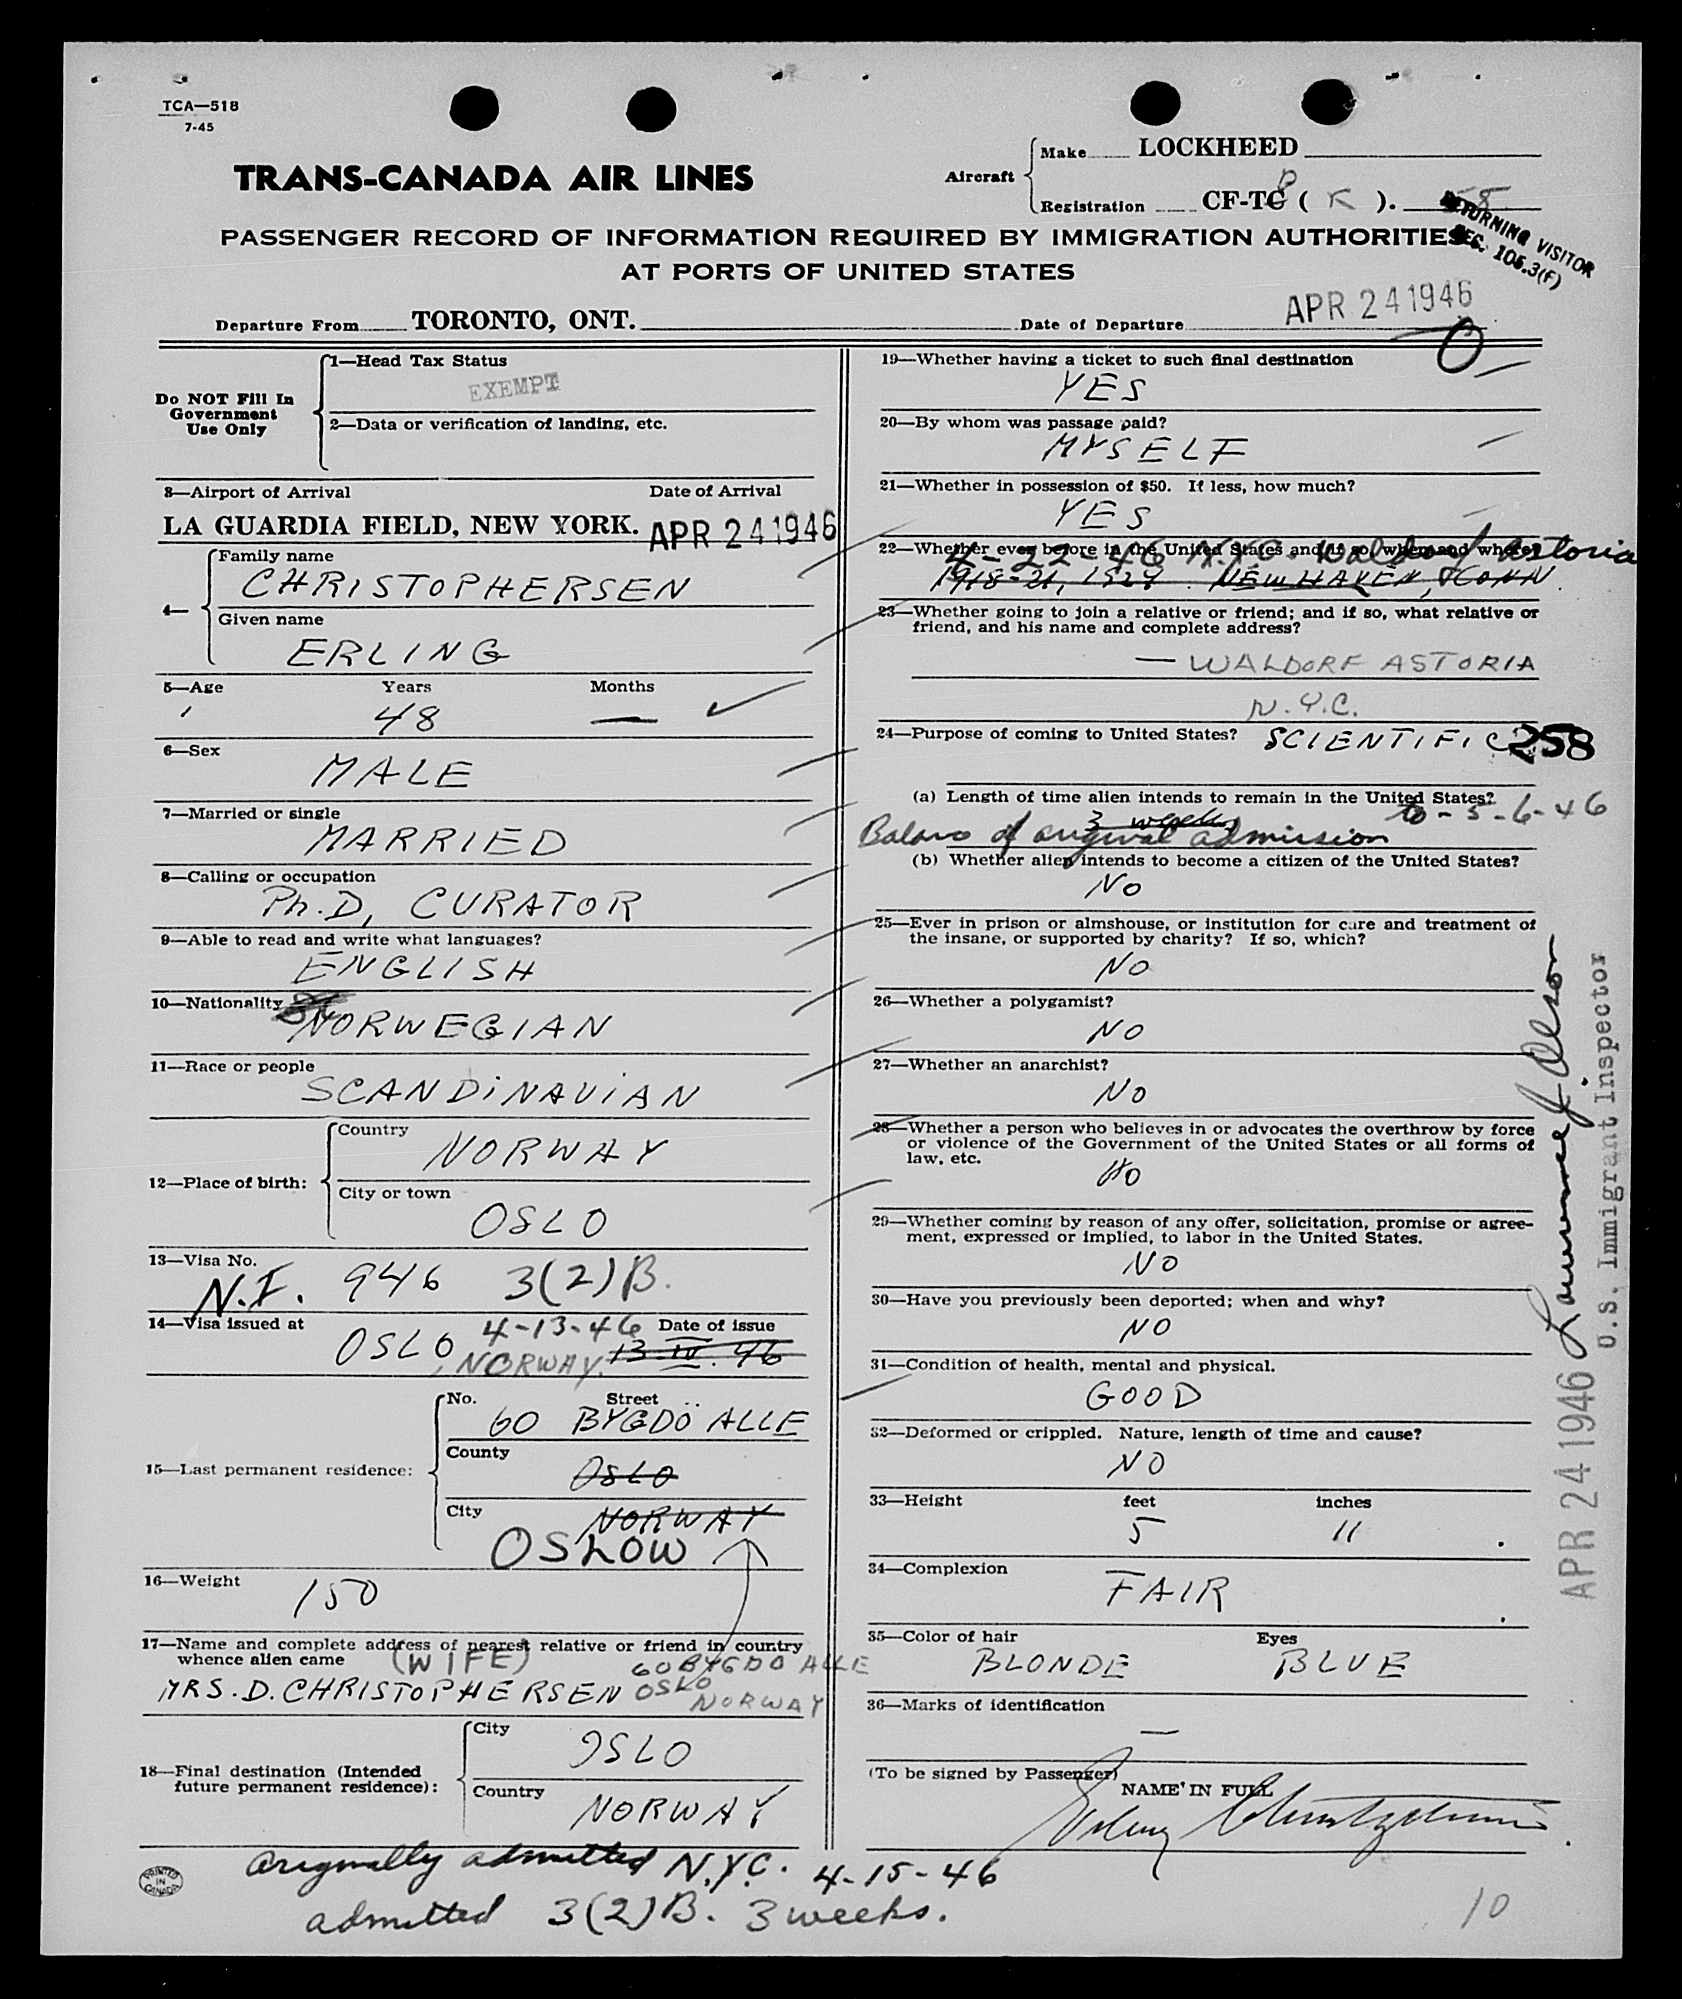 TCA—518
7-45
TRANS-CANADA AIR LINES
Aircraft
Make LOCKHEED
Registration CF-TC ( K ).
RETURNING VISITOR
SEC. 105.3(f)
PASSENGER RECORD OF INFORMATION REQUIRED BY IMMIGRATION AUTHORITIES
AT PORTS OF UNITED STATES
Departure From TORONTO, ONT. Date of Departure APR 24 1946
Do NOT Fill In
Government
Use Only
1—Head Tax Status
EXEMPT
2—Data or verification of landing, etc.
3—Airport of Arrival Date of Arrival
LA GUARDIA FIELD, NEW YORK. APR 24 1946
4—
Family name
CHRISTOPHERSEN
Given name
ERLING
5—Age Years Months
48 —
6—Sex
MALE
7—Married or single
MARRIED
8—Calling or occupation
Ph.D, CURATOR
9—Able to read and write what languages?
ENGLISH
10—Nationality
NORWEGIAN
11—Race or people
SCANDINAVIAN
12—Place of birth:
Country
NORWAY
City or town
OSLO
13—Visa No.
N.I. 946 3(2)B.
14—Visa issued at Date of issue
OSLO, NORWAY. 4-13-46
13-IV.46
15—Last permanent residence:
No. Street
60 BYGDÖ ALLE
County
OSLO
City
NORWAY
OSLOW
16—Weight
150
17—Name and complete address of nearest relative or friend in country
whence alien came
(WIFE)
MRS. D. CHRISTOPHERSEN
60 BYGDO ALLE
OSLO
NORWAY
18—Final destination (Intended
future permanent residence):
City
OSLO
Country
NORWAY
19—Whether having a ticket to such final destination
YES
20—By whom was passage paid?
MYSELF
21—Whether in possession of $50. If less, how much?
YES
22—Whether ever before in the United States and if so, when and where?
4-22-46 N.Y.C. Waldorf Astoria
1918-21, 1929 NEW HAVEN, CONN.
23—Whether going to join a relative or friend; and if so, what relative or
friend, and his name and complete address?
— WALDORF ASTORIA
N.Y.C.
24—Purpose of coming to United States? SCIENTIFIC
258
(a) Length of time alien intends to remain in the United States?
3 weeks
to - 5-6-46
Balance of original admission
(b) Whether alien intends to become a citizen of the United States?
NO
25—Ever in prison or almshouse, or institution for care and treatment of
the insane, or supported by charity? If so, which?
NO
26—Whether a polygamist?
NO
27—Whether an anarchist?
NO
28—Whether a person who believes in or advocates the overthrow by force
or violence of the Government of the United States or all forms of
law, etc.
NO
29—Whether coming by reason of any offer, solicitation, promise or agree-
ment, expressed or implied, to labor in the United States.
NO
30—Have you previously been deported; when and why?
NO
31—Condition of health, mental and physical.
GOOD
32—Deformed or crippled. Nature, length of time and cause?
NO
33—Height feet inches
5 11
34—Complexion
FAIR
35—Color of hair Eyes
BLONDE BLUE
36—Marks of identification
—
(To be signed by Passenger)
NAME IN FULL
Erling Christophersen
Lawrence J. Olson
U.S. Immigrant Inspector
APR 24 1946
Originally admitted N.Y.C. 4-15-46
admitted 3(2)B. 3 weeks.
PRINTED
IN
CANADA
10